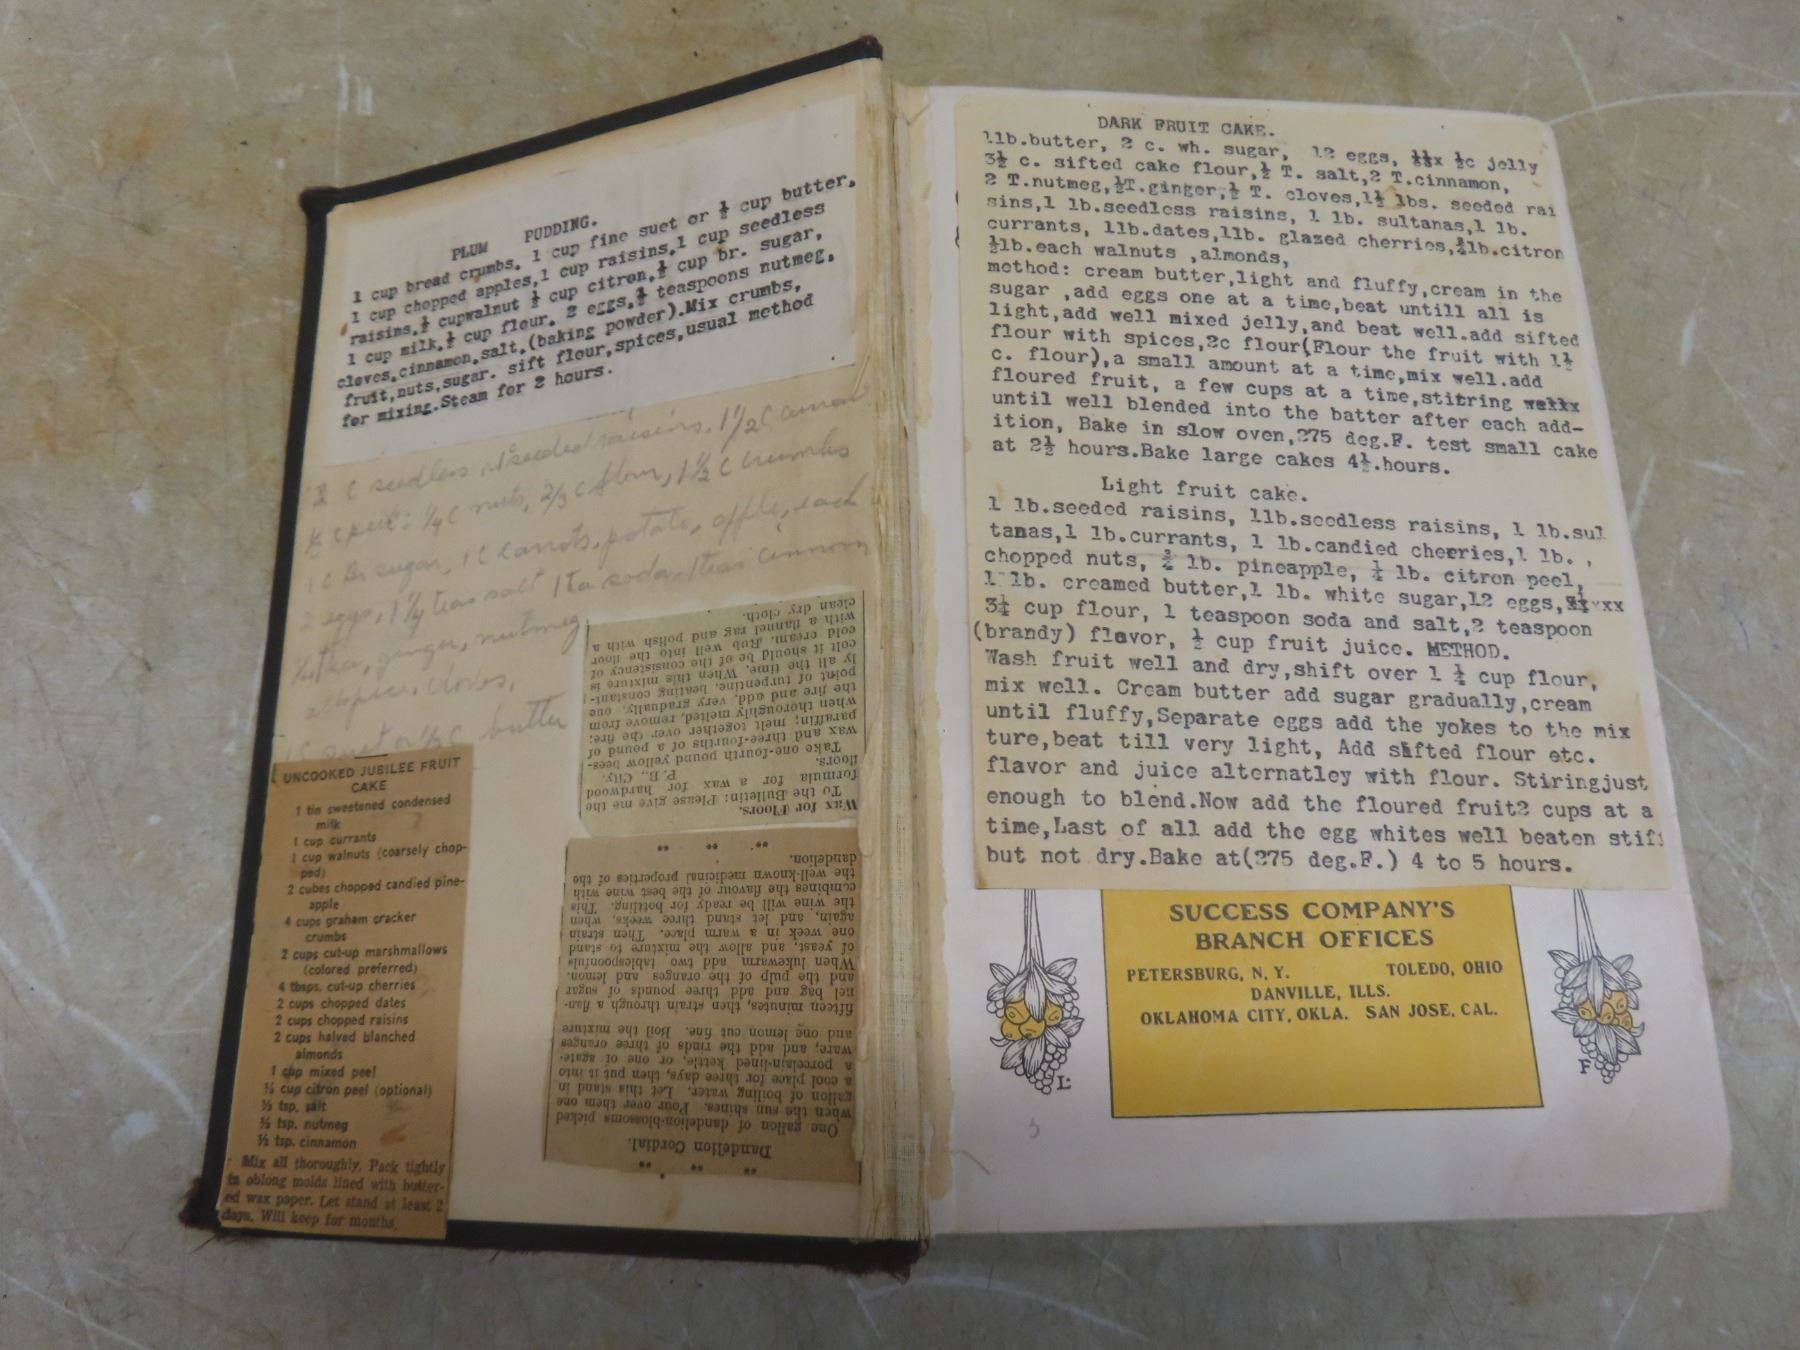 PLUM PUDDING.
1 cup bread crumbs. 1 cup fine suet or ½ cup butter.
1 cup chopped apples,1 cup raisins,1 cup seedless
raisins.½ cupwalnut ½ cup citron.½ cup br. sugar,
1 cup milk.½ cup flour. 2 eggs.½ teaspoons nutmeg.
cloves.cinnamon.salt.(baking powder).Mix crumbs,
fruit,nuts,sugar. sift flour,spices,usual method
for mixing.Steam for 2 hours.
c seedless seeded raisins, 1½ c
c peel: ¼ c nuts, 2/3 c flour, 1½ c crumbs
1 c br sugar, 1 c carrots, potato, apple, each
eggs, 1¼ tea salt 1 tea soda, 1 tea cinnom
¼ tea, ginger, nutmeg
allspice, cloves,
suet or ½ c butter
UNCOOKED JUBILEE FRUIT
CAKE
1 tin sweetened condensed
milk
1 cup currants
1 cup walnuts (coarsely chop-
ped)
2 cubes chopped candied pine-
apple
4 cups graham cracker
crumbs
2 cups cut-up marshmallows
(colored preferred)
4 tbsps. cut-up cherries
2 cups chopped dates
2 cups chopped raisins
2 cups halved blanched
almonds
1 cup mixed peel
cup citron peel (optional)
½ tsp. salt
½ tsp. nutmeg
½ tsp. cinnamon
Mix all thoroughly. Pack tightly
in oblong molds lined with butter-
ed wax paper. Let stand at least 2
days. Will keep for months.
Wax for Floors.
To the Bulletin: Please give me the
formula for a wax for hardwood
floors. P. B., City.
Take one-fourth pound yellow bees-
wax and three-fourths of a pound of
paraffin; melt together over the fire;
when thoroughly melted, remove from
the fire and add, very gradually, one
point of turpentine, beating constant-
ly all the time. When this mixture is
colt it should be of the consistency of
cold cream. Rub well into the floor
with a flannel rag and polish with a
clean dry cloth.
Dandelion Cordial.
One gallon of dandelion-blossoms picked
when the sun shines. Pour over them one
gallon of boiling water. Let this stand in
a cool place for three days, then put it into
a porcelain-lined kettle, or one of agate-
ware, and add the rinds of three oranges
and one lemon cut fine. Boil the mixture
fifteen minutes, then strain through a flan-
nel bag and add three pounds of sugar
and the pulp of the oranges and lemon.
When lukewarm add two tablespoonfuls
of yeast, and allow the mixture to stand
one week in a warm place. Then strain
again, and let stand three weeks, when
the wine will be ready for bottling. This
combines the flavour of the best wine with
the well-known medicinal properties of the
dandelion.
DARK FRUIT CAKE.
1lb.butter, 2 c. wh. sugar, 12 eggs, ½c jelly
3½ c. sifted cake flour,½ T. salt,2 T.cinnamon,
2 T.nutmeg,½T.ginger,½ T. cloves,1½ lbs. seeded rai
sins,1 lb.seedless raisins, 1 lb. sultanas,1 lb.
currants, 1lb.dates,1lb. glazed cherries,½lb.citron
½lb.each walnuts ,almonds,
method: cream butter,light and fluffy,cream in the
sugar ,add eggs one at a time,beat untill all is
light,add well mixed jelly,and beat well.add sifted
flour with spices,2c flour(Flour the fruit with 1½
c. flour),a small amount at a time,mix well.add
floured fruit, a few cups at a time,stitring
until well blended into the batter after each add-
ition, Bake in slow oven,275 deg.F. test small cake
at 2½ hours.Bake large cakes 4½.hours.
Light fruit cake.
1 lb.seeded raisins, 1lb.seedless raisins, 1 lb.sul
tanas,1 lb.currants, 1 lb.candied cherries,1 lb. ,
chopped nuts, lb. pineapple, lb. citron peel,
1 lb. creamed butter,1 lb. white sugar,12 eggs,
3¼ cup flour, 1 teaspoon soda and salt,2 teaspoon
(brandy) flavor, ½ cup fruit juice. METHOD.
Wash fruit well and dry,shift over 1 ¼ cup flour,
mix well. Cream butter add sugar gradually,cream
until fluffy,Separate eggs add the yokes to the mix
ture,beat till very light, Add shfted flour etc.
flavor and juice alternatley with flour. Stiringjust
enough to blend.Now add the floured fruit2 cups at a
time,Last of all add the egg whites well beaten stif
but not dry.Bake at(275 deg.F.) 4 to 5 hours.
SUCCESS COMPANY'S
BRANCH OFFICES
PETERSBURG, N. Y. TOLEDO, OHIO
DANVILLE, ILLS.
OKLAHOMA CITY, OKLA. SAN JOSE, CAL.
L.
F